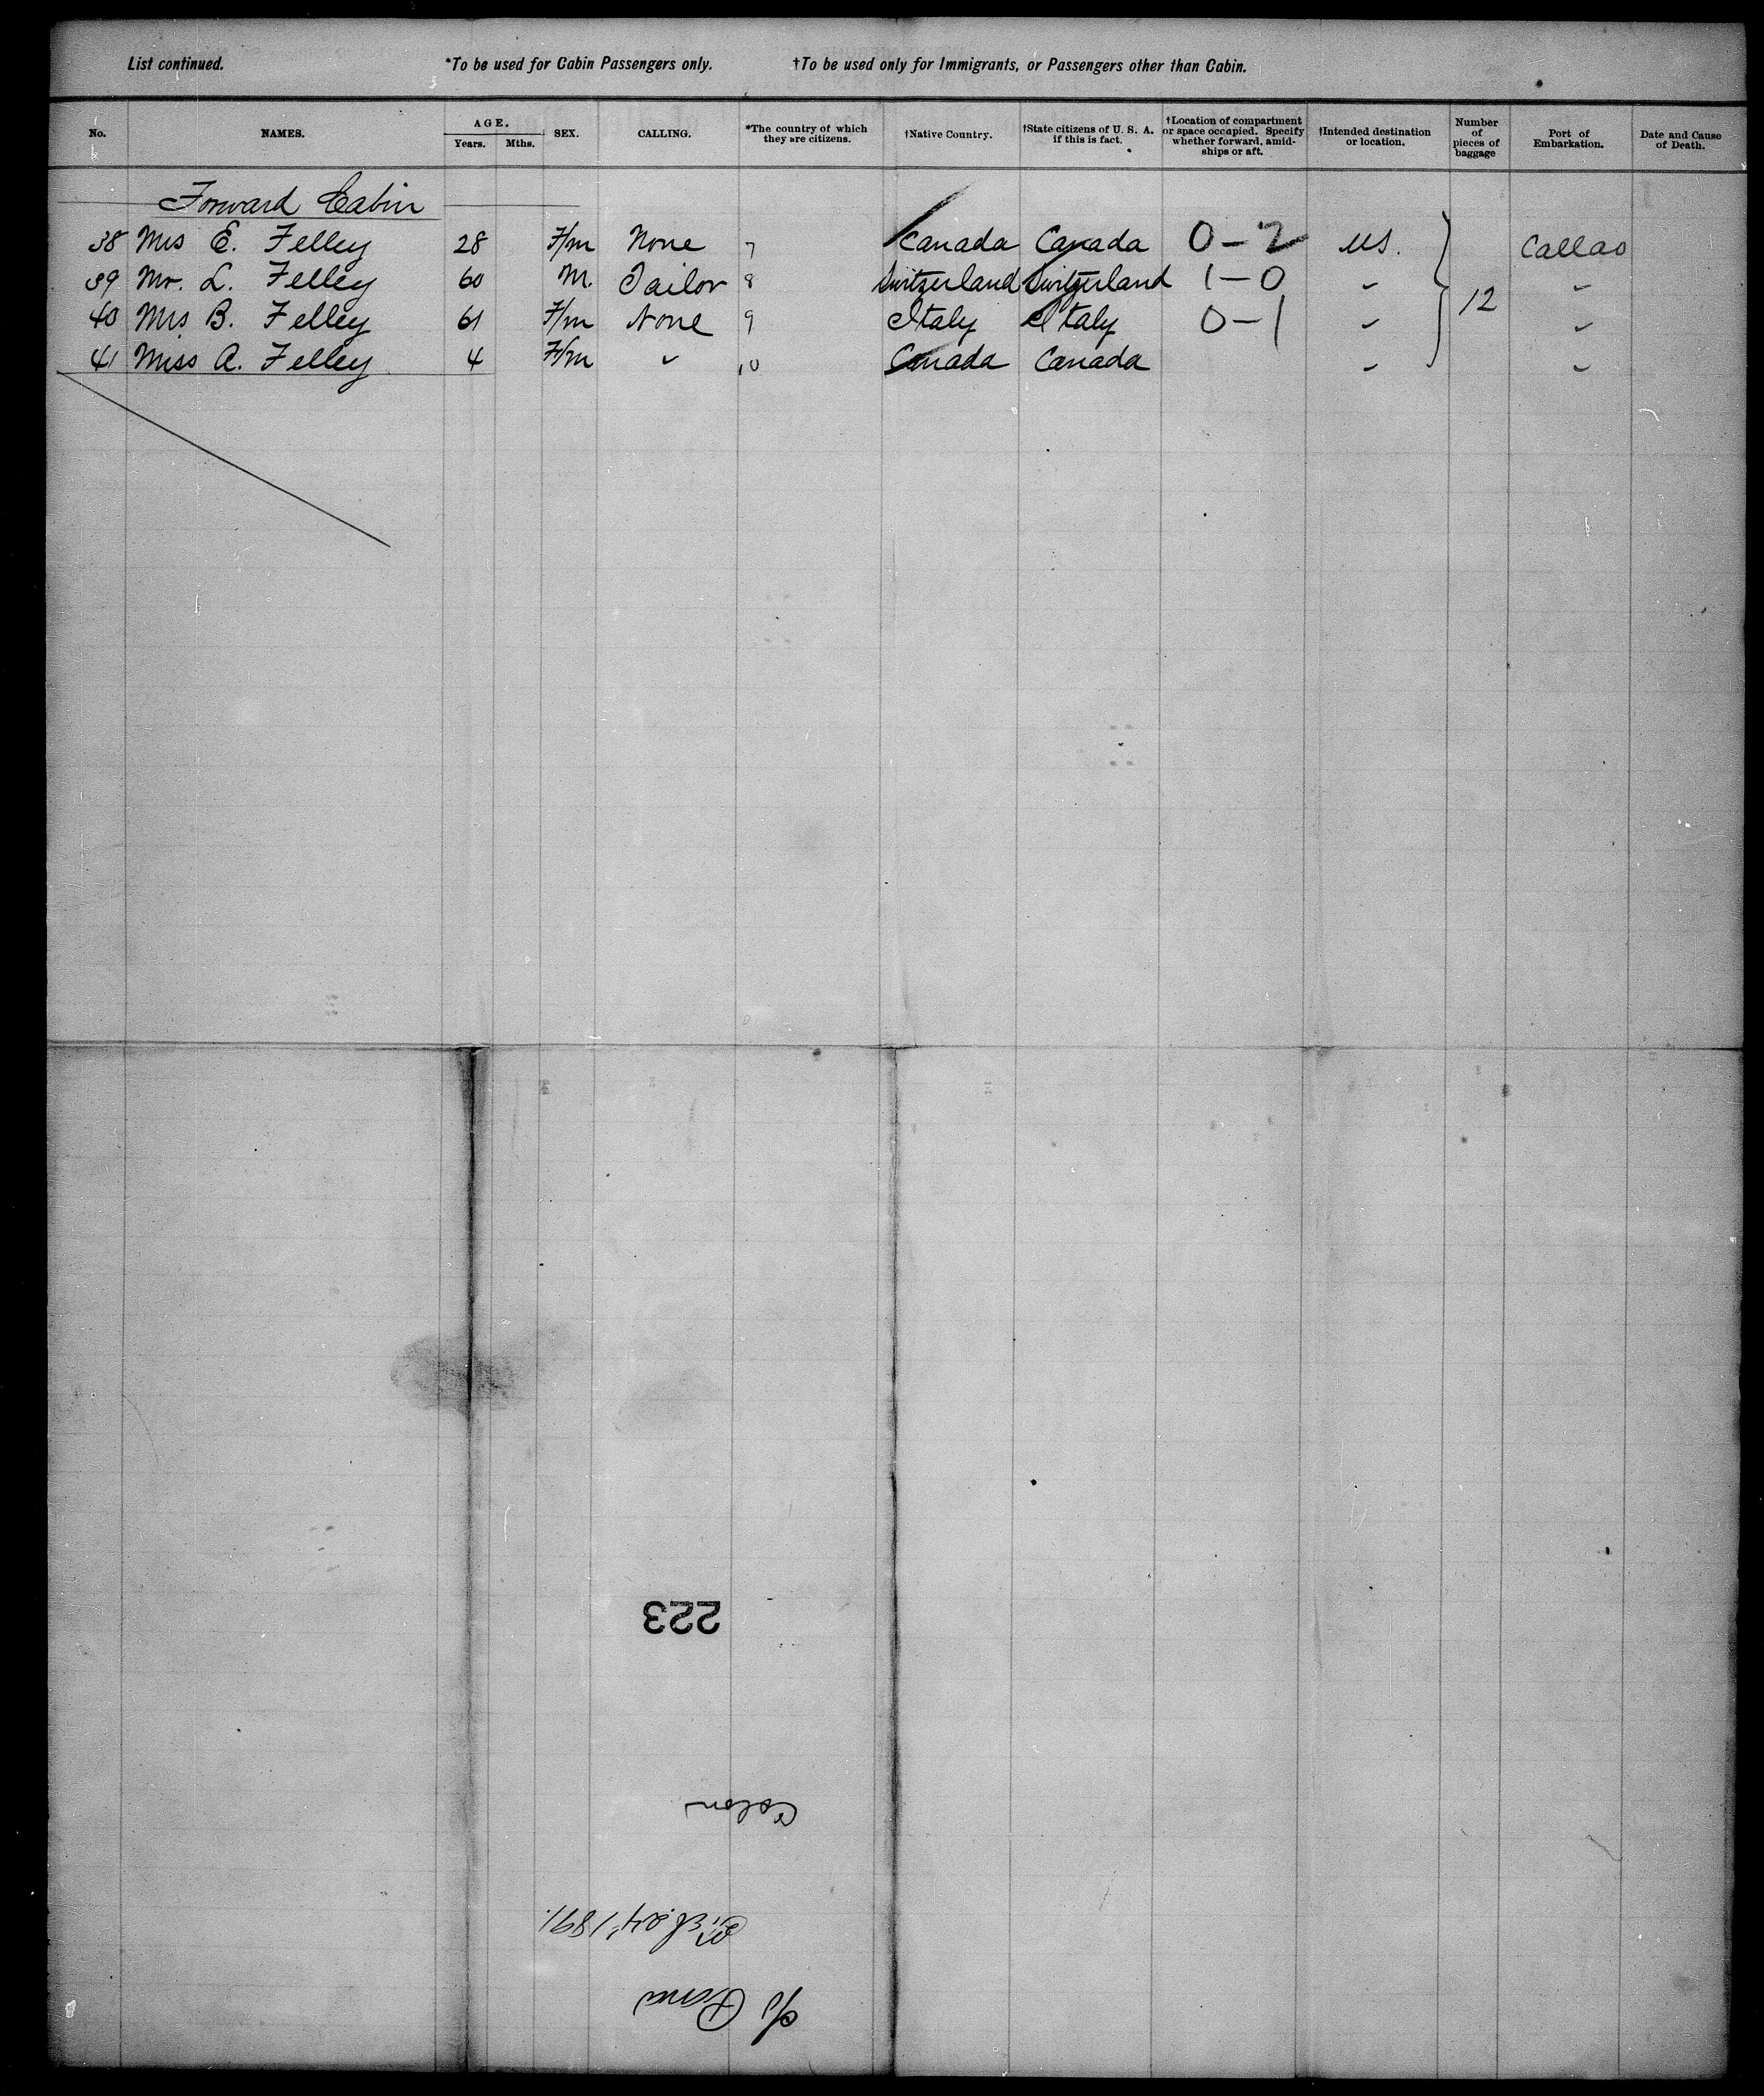 List continued. *To be used for Cabin Passengers only. †To be used only for Immigrants, or Passengers other than Cabin.
No. NAMES. AGE. Years. Mths. SEX. CALLING. *The country of which they are citizens. †Native Country. †State citizens of U. S. A. if this is fact. †Location of compartment or space occupied. Specify whether forward, amid-ships or aft. †Intended destination or location. Number of pieces of baggage Port of Embarkation. Date and Cause of Death.
Forward Cabin
38 Mrs E. Felley 28 F/m None 7 Canada Canada 0-2 US. Callao
39 Mr. L. Felley 60 M. Tailor 8 Switzerland Switzerland 1-0 "
12
40 Mrs B. Felley 61 F/m None 9 Italy Italy 0-1 " "
41 Miss A. Felley 4 F/m " 10 Canada Canada " "
223
Colon
24, 1891.
S/S